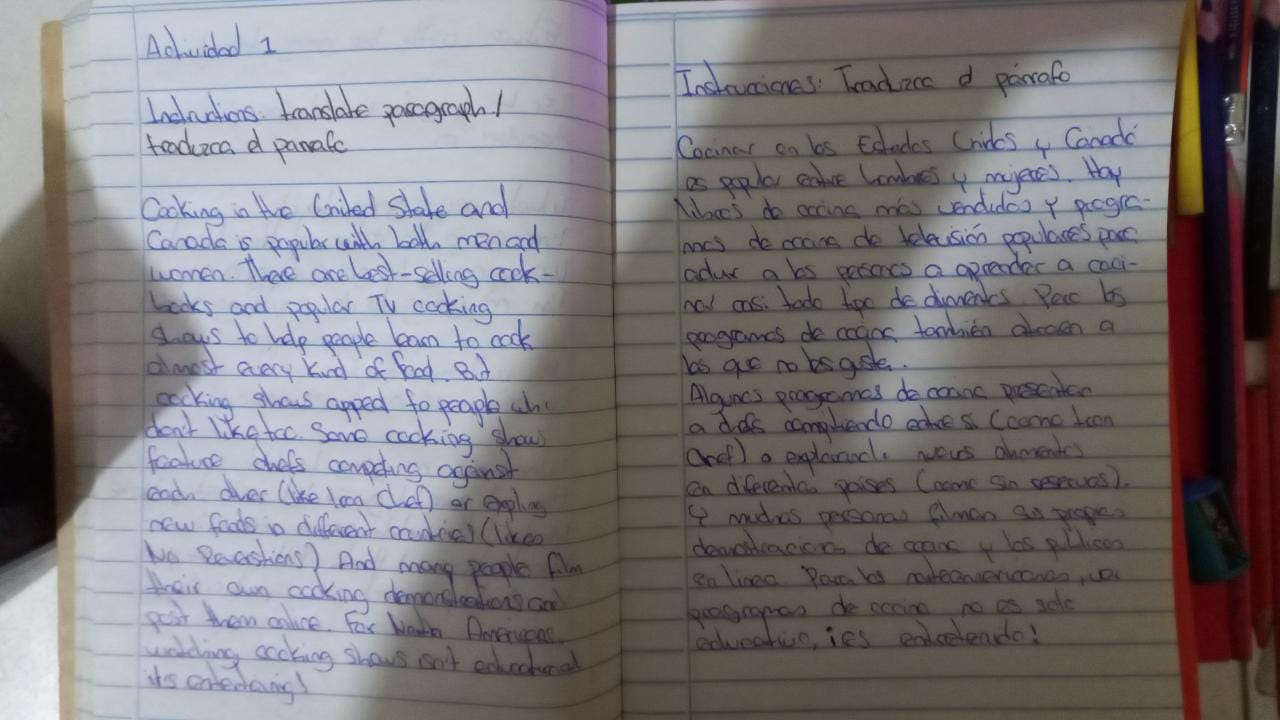 Actividad 1
Instructions: translate paragraph /
traduzca el parrafo
Cooking in the United State and
Canada is popular with both men and
women. There are best-selling cook-
books and popular TV cooking
shows to help people learn to cook
almost every kind of food. But
cooking shows appeal to people who
don't like too. Some cooking shows
feature chefs competing against
each other (like Iron Chef) or
new foods in different countries (likes
No And many people film
their own cooking demonstrations and
post them online. For North Americans
watching cooking shows isn't educational
its
Instrucciones: Traduzca el párrafo
Cocinar en los Estados Unidos y Canadá
es popular entre hombres y mujeres. Hay
libros de cocina más vendidos y progra-
mas de cocina de televisión populares para
a los personas a aprender a coci-
nar casi todo tipo de alimentos. Pero los
programas de cocina también atraen a
los que no les gusta.
Algunos programas de cocina presentan
a chefs compitiendo entre si (como Iron
Chef) o explorando nuevos alimentos
en diferentes paises (como sin reservas).
Y muchas personas filman sus propias
demostraciones de cocina y los publican
en linea. Para los norteamericanos, ver
programas de cocina no es solo
educativo, ¡es entretenido!